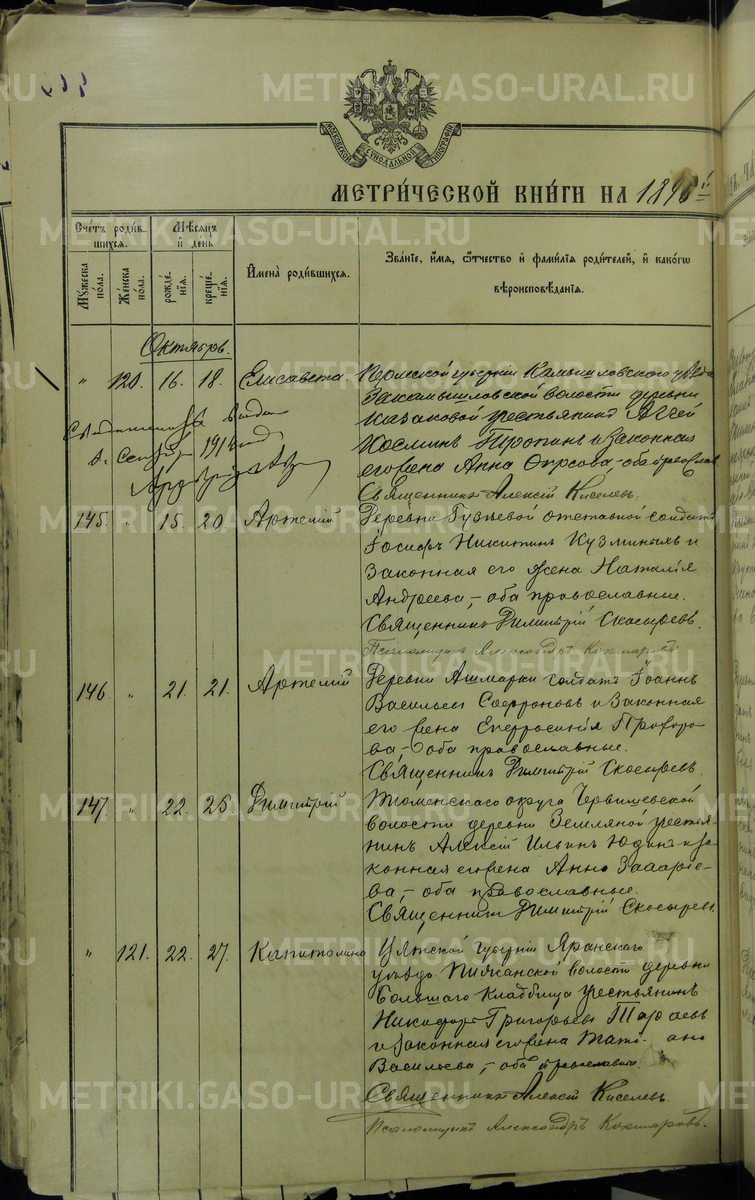 METRIKI.GASO-URAL.RU
МОСКОВСКОЙ СѴНОДАЛЬНОЙ ТИПОГРАФІИ
МЕТРИ́ЧЕСКОЙ КНИ́ГИ НА 1898 й
Счетъ роди́вшихся.
Мѣсяцъ и день
Имена̀ роди́вшихся.
Зва́ніе, и́мя, ѻ҆́тчество и҆ фами́лїѧ роди́телей, и҆ како́гѡ
вѣроисповѣ́данїѧ.
Му́жеска по́ла.
Же́нска по́ла.
рожде́нїѧ.
креще́нїѧ.
Октябрь.
" 120. 16. 18. Елисавета. Пермской губерніи Камышловскаго уѣзда
Закамышловской волости деревни
Казаковой крестьянинъ Аггей
Космин и законная
его жена Анна, оба правосл
Священникъ Алексій Киселевъ.
Сентябр 1914
145. " 15. 20 Артемій Деревни Гузѣевой отставной солдатъ
Іосифъ Никитинъ Кузминыхъ и
законная его жена Наталія
Андреева, - оба православные.
Священникъ Димитрій Скосыревъ.
Псаломщикъ Александръ Кокшаровъ
146. " 21. 21. Артемій Деревни Ашмарки солдатъ Іоаннъ
Васильевъ Софроновъ и законная
его жена Евфросинія Прохоро
ва, - оба православные.
Священникъ Димитрій Скосыревъ.
147. " 22. 25. Димитрій Тюменскаго округа Червишевской
волости деревни Земляной крестья
нинъ Алексій Ильинъ Юдинъ и за
конная его жена Анна Захаріе
ва, - оба православные.
Священникъ Димитрій Скосыревъ.
" 121. 22. 27. Капитолина Вятской губерніи Яранскаго
уѣзда волости деревни
Большаго Кладбища крестьянинъ
Никифоръ Григорьевъ Тарасевъ
и законная его жена Татіана
Васильева, - оба православные.
Священникъ Алексій Киселевъ.
Псаломщикъ Александръ Кокшаровъ.